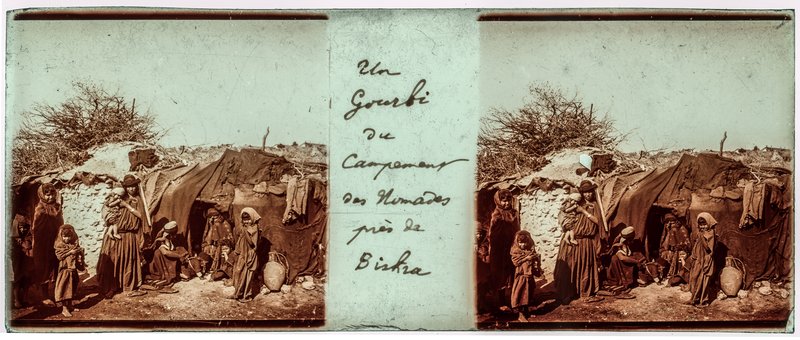 Un
Gourbi
du
Campement
des Nomades
près de
Biskra